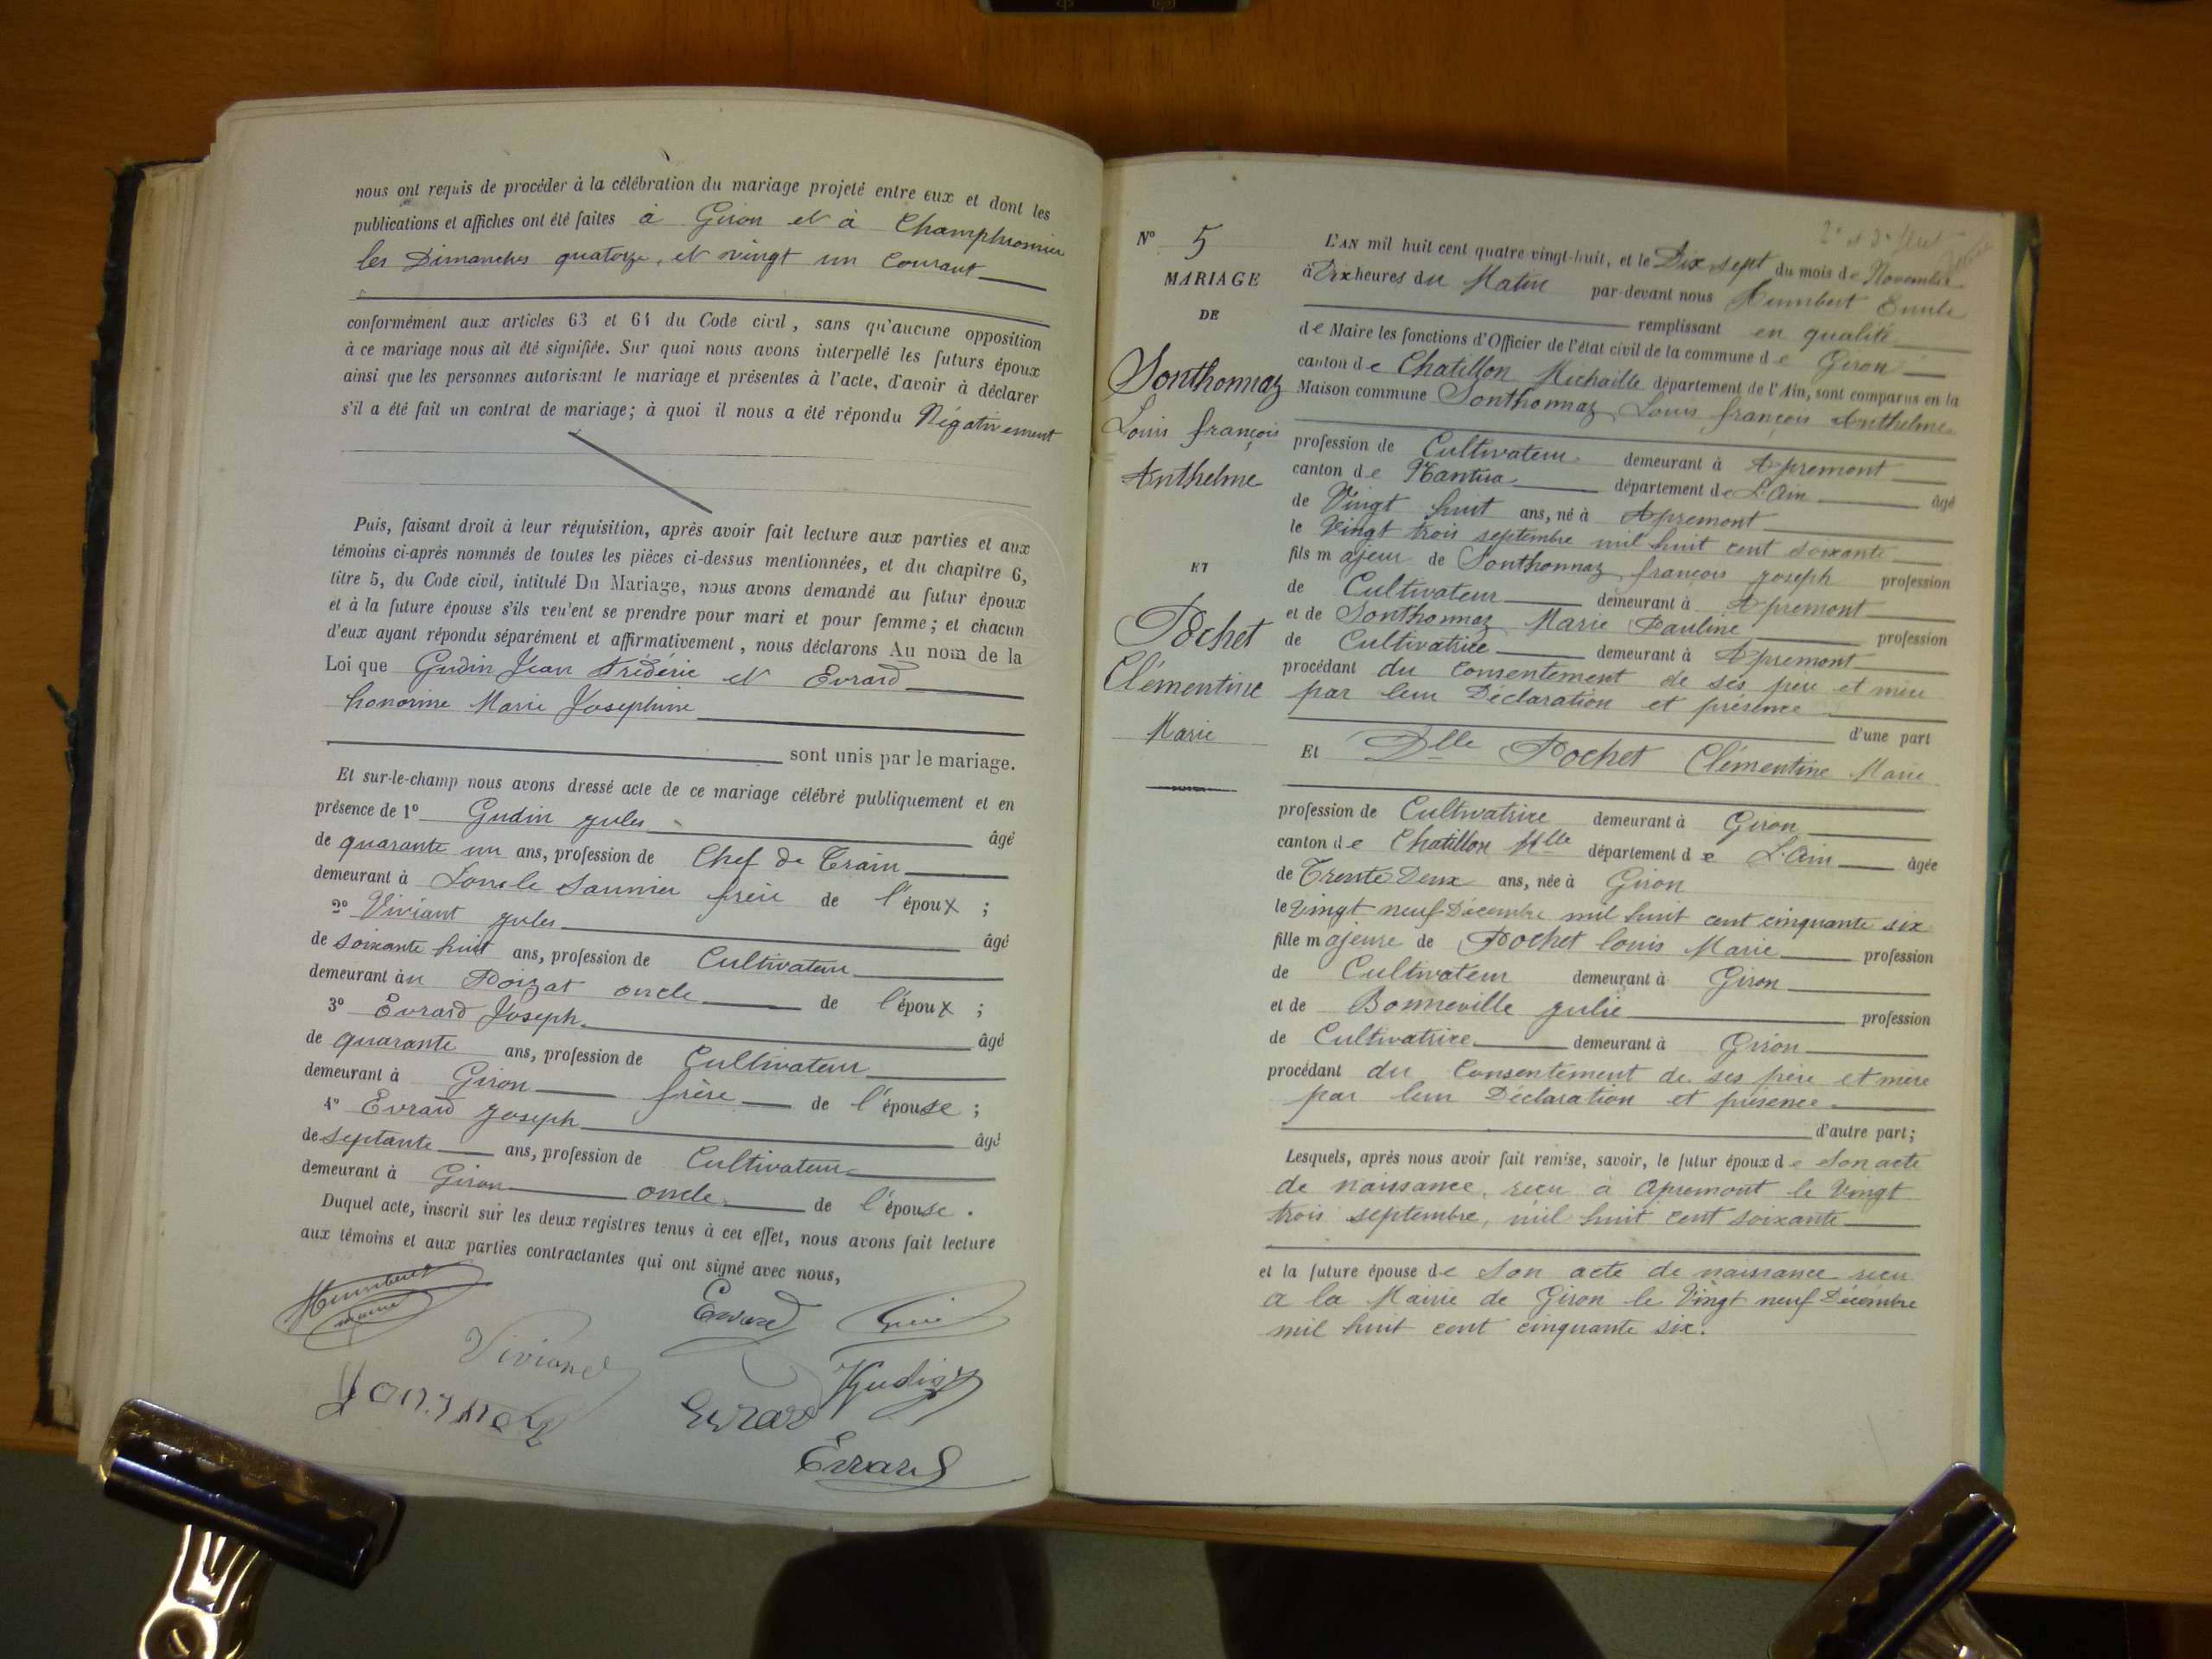 nous ont requis de procéder à la célébration du mariage projeté entre eux et dont les
publications et affiches ont été faites à Giron et à Champfromier
les Dimanches quatorze, et vingt un Courant
conformément aux articles 63 et 64 du Code civil, sans qu'aucune opposition
à ce mariage nous ait été signifiée. Sur quoi nous avons interpellé les futurs époux
ainsi que les personnes autorisant le mariage et présentes à l'acte, d'avoir à déclarer
s'il a été fait un contrat de mariage; à quoi il nous a été répondu Négativement
Puis, faisant droit à leur réquisition, après avoir fait lecture aux parties et aux
témoins ci-après nommés de toutes les pièces ci-dessus mentionnées, et du chapitre 6,
titre 5, du Code civil, intitulé Du Mariage, nous avons demandé au futur époux
et à la future épouse s'ils veulent se prendre pour mari et pour femme; et chacun
d'eux ayant répondu séparément et affirmativement, nous déclarons Au nom de la
Loi que Gudin Jean Frédéric et Evrard
honorine Marie Joséphine
sont unis par le mariage.
Et sur-le-champ nous avons dressé acte de ce mariage célébré publiquement et en
présence de 1° Gudin jules âgé
de quarante un ans, profession de Chef de Train
demeurant à Lons le Saunier frère de l'époux ;
2° Viviant jules âgé
de soixante huit ans, profession de Cultivateur
demeurant au Poizat oncle de l'époux ;
3° Evrard Joseph âgé
de quarante ans, profession de Cultivateur
demeurant à Giron frère de l'épouse ;
4° Evrard joseph âgé
de septante ans, profession de Cultivateur
demeurant à Giron oncle de l'épouse.
Duquel acte, inscrit sur les deux registres tenus à cet effet, nous avons fait lecture
aux témoins et aux parties contractantes qui ont signé avec nous,
Humbert
maire
Evrard
Viviand
Gudin
Evrard
Evrard
N° 5
MARIAGE
DE
Sonthonnaz
Louis françois
Anthelme
ET
Pochet
Clémentine
Marie
L'AN mil huit cent quatre vingt-huit, et le Dix sept du mois de Novembre
à Dix heures du Matin par-devant nous Humbert Emile
remplissant en qualité
de Maire les fonctions d'Officier de l'état civil de la commune de Giron
canton de Chatillon Michaille département de l'Ain, sont comparus en la
Maison commune Sonthonnaz Louis françois Anthelme
profession de Cultivateur demeurant à Apremont
canton de Nantua département de L'Ain âgé
de Vingt huit ans, né à Apremont
le Vingt trois septembre mil huit cent soixante
fils majeur de Sonthonnaz françois joseph profession
de Cultivateur demeurant à Apremont
et de Sonthonnaz Marie Pauline profession
de Cultivatrice demeurant à Apremont
procédant du Consentement de ses père et mère
par leur Déclaration et présence
d'une part
Et Dlle Pochet Clémentine Marie
profession de Cultivatrice demeurant à Giron
canton de Chatillon Mlle département de L'Ain âgée
de Trente Deux ans, née à Giron
le Vingt neuf Décembre mil huit cent cinquante six
fille majeure de Pochet louis Marie profession
de Cultivateur demeurant à Giron
et de Bonneville julie profession
de Cultivatrice demeurant à Giron
procédant du Consentement de ses père et mère
par leur Déclaration et présence
d'autre part;
Lesquels, après nous avoir fait remise, savoir, le futur époux de Son acte
de naissance, reçu à Apremont le Vingt
trois septembre, mil huit cent soixante
et la future épouse de Son acte de naissance reçu
a la Mairie de Giron le Vingt neuf Décembre
mil huit cent cinquante six.